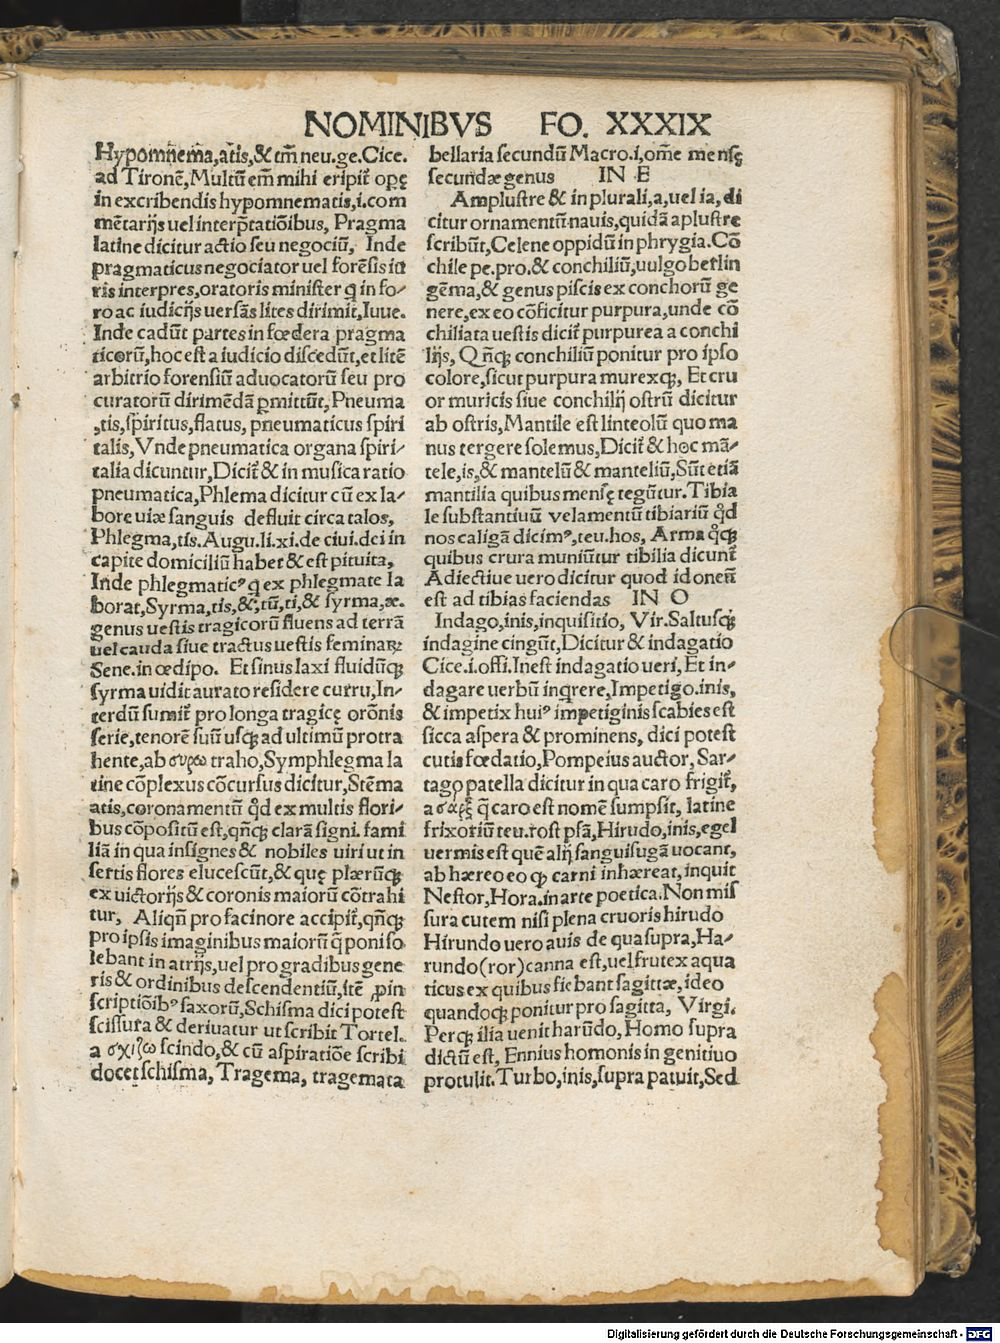 NOMINIBVS FO. XXXIX
Hypomnema̅,atis,& tm̅ neu.ge.Cice.
ad Tirone̅,Multu̅ em̅ mihi eripit̅ opę
in excribendis hypomnematis,i.com
me̅tarijs uel interp̅tatio̅ibus, Pragma
latine dicitur actio seu negociu̅, Inde
pragmaticus negociator uel fore̅sis iu
ris interpres,oratoris minister q̅ in fo⸗
ro ac iudicijs uersa̅s lites dirimit,Iuue.
Inde cadu̅t partes in fœdera pragma
ticoru̅,hoc est a iudicio discedu̅t,et lite̅
arbitrio forensiu̅ aduocatoru̅ seu pro
curatoru̅ dirime̅da̅ ꝑmittu̅t,Pneuma
,tis,spiritus,flatus, pneumaticus spiri
talis,Vnde pneumatica organa spiri⸗
talia dicuntur,Dicit̅ & in musica ratio
pneumatica,Phlema dicitur cu̅ ex la⸗
bore uiæ sanguis defluit circa talos,
Phlegma,tis.Augu.li.xi.de ciui.dei in
capite domiciliu̅ habet & est pituita,
Inde phlegmaticꝰ q̅ ex phlegmate la
borat,Syrma,tis,&,tu̅,ti,& syrma,æ.
genus uestis tragicoru̅ fluens ad terra̅
uel cauda siue tractus uestis feminaꝝ
Sene.in œdipo. Et sinus laxi fluidu̅qꝫ
syrma uidit aurato residere curru,In⸗
terdu̅ sumit̅ pro longa tragicę oro̅nis
serie,tenore̅ suu̅ usqꝫ ad ultimu̅ protra
hente,ab συρω traho,Symphlegma la
tine co̅plexus co̅cursus dicitur,Ste̅ma
atis,coronamentu̅ qd̅ ex multis flori⸗
bus co̅positu̅ est,qn̅qꝫ clara̅ signi. fami
lia̅ in qua insignes & nobiles uiri ut in
sertis flores elucescu̅t,& quę plæru̅qꝫ
ex uictorijs & coronis maioru̅ co̅trahi
tur, Aliqn̅ pro facinore accipit̅,qn̅qꝫ
pro ipsis imaginibus maioru̅ q̅ poni so
lebant in atrijs,uel pro gradibus gene
ris & ordinibus descendentiu̅,ite̅ ꝓ in
scriptio̅ibꝰ saxoru̅,Schisma dici potest
scissura & deriuatur ut scribit Tortel.
a σχιζω scindo,& cu̅ aspiratio̅e scribi
docet schisma, Tragema, tragemata
bellaria secundu̅ Macro.i,om̅e mensę
secundæ genus IN E
Amplustre & in plurali,a,uel ia,di
citur ornamentu̅ nauis,quida̅ aplustre
scribu̅t,Celene oppidu̅ in phrygia.Co̅
chile pe.pro.& conchiliu̅,uulgo berlin
ge̅ma,& genus piscis ex conchoru̅ ge
nere,ex eo co̅ficitur purpura,unde co̅
chiliata uestis dicit̅ purpurea a conchi
lijs, Qn̅qꝫ conchiliu̅ ponitur pro ipso
colore,sicut purpura murexqꝫ, Et cru
or muricis siue conchilij ostru̅ dicitur
ab ostris,Mantile est linteolu̅ quo ma
nus tergere solemus,Dicit̅ & hoc ma̅⸗
tele,is,& mantelu̅ & manteliu̅,Su̅t etia̅
mantilia quibus mensę tegu̅tur.Tibia
le substantiuu̅ velamentu̅ tibiariu̅ qd̅
nos caliga̅ dicimꝰ,teu.hos, Arma q̅qꝫ
quibus crura muniu̅tur tibilia dicunt̅
Adiectiue uero dicitur quod idoneu̅
est ad tibias faciendas IN O
Indago,inis,inquisitio, Vir.Saltusqꝫ
indagine cingu̅t,Dicitur & indagatio
Cice.i.offi.Inest indagatio ueri, Et in⸗
dagare uerbu̅ inq̅rere,Impetigo.inis,
& impetix huiꝰ impetiginis scabies est
sicca aspera & prominens, dici potest
cutis fœdatio, Pompeius auctor, Sar⸗
tago patella dicitur in qua caro frigit̅,
a σαρξ q̅ caro est nome̅ sumpsit, latine
frixoriu̅ teu.rost psa̅,Hirudo,inis,egel
uermis est que̅ alij sanguisuga̅ uocant,
ab hæreo eo ꝙ carni inhæreat, inquit
Nestor,Hora.in arte poetica.Non mis
sura cutem nisi plena cruoris hirudo
Hirundo uero auis de qua supra,Ha⸗
rundo(ror)canna est,uel frutex aqua
ticus ex quibus fiebant sagittæ, ideo
quandoqꝫ ponitur pro sagitta, Virgi.
Perqꝫ ilia uenit haru̅do, Homo supra
dictu̅ est, Ennius homonis in genitiuo
protulit. Turbo,inis,supra patuit,Sed
Digitalisierung gefördert durch die Deutsche Forschungsgemeinschaft - DFG